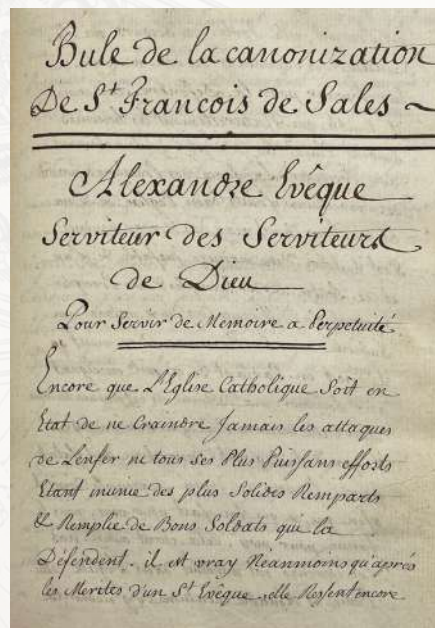 Bule de la canonization
De S.t Francois de Sales ~
Alexandre Evêque
Serviteur des Serviteurs
de Dieu
Pour Servir de Memoire a Perpetuité
Encore que L'Eglise Catholique Soit en
Etat de ne Craindre Jamais les attaques
de Lenfer ni tous ses Plus Puissans efforts
Etant munie des plus Solides Remparts
& Remplie de Bons Soldats qui la
Défendent. il est vray Néanmoins qu'après
les Merites d'un S.t Evêque, elle Ressent encore